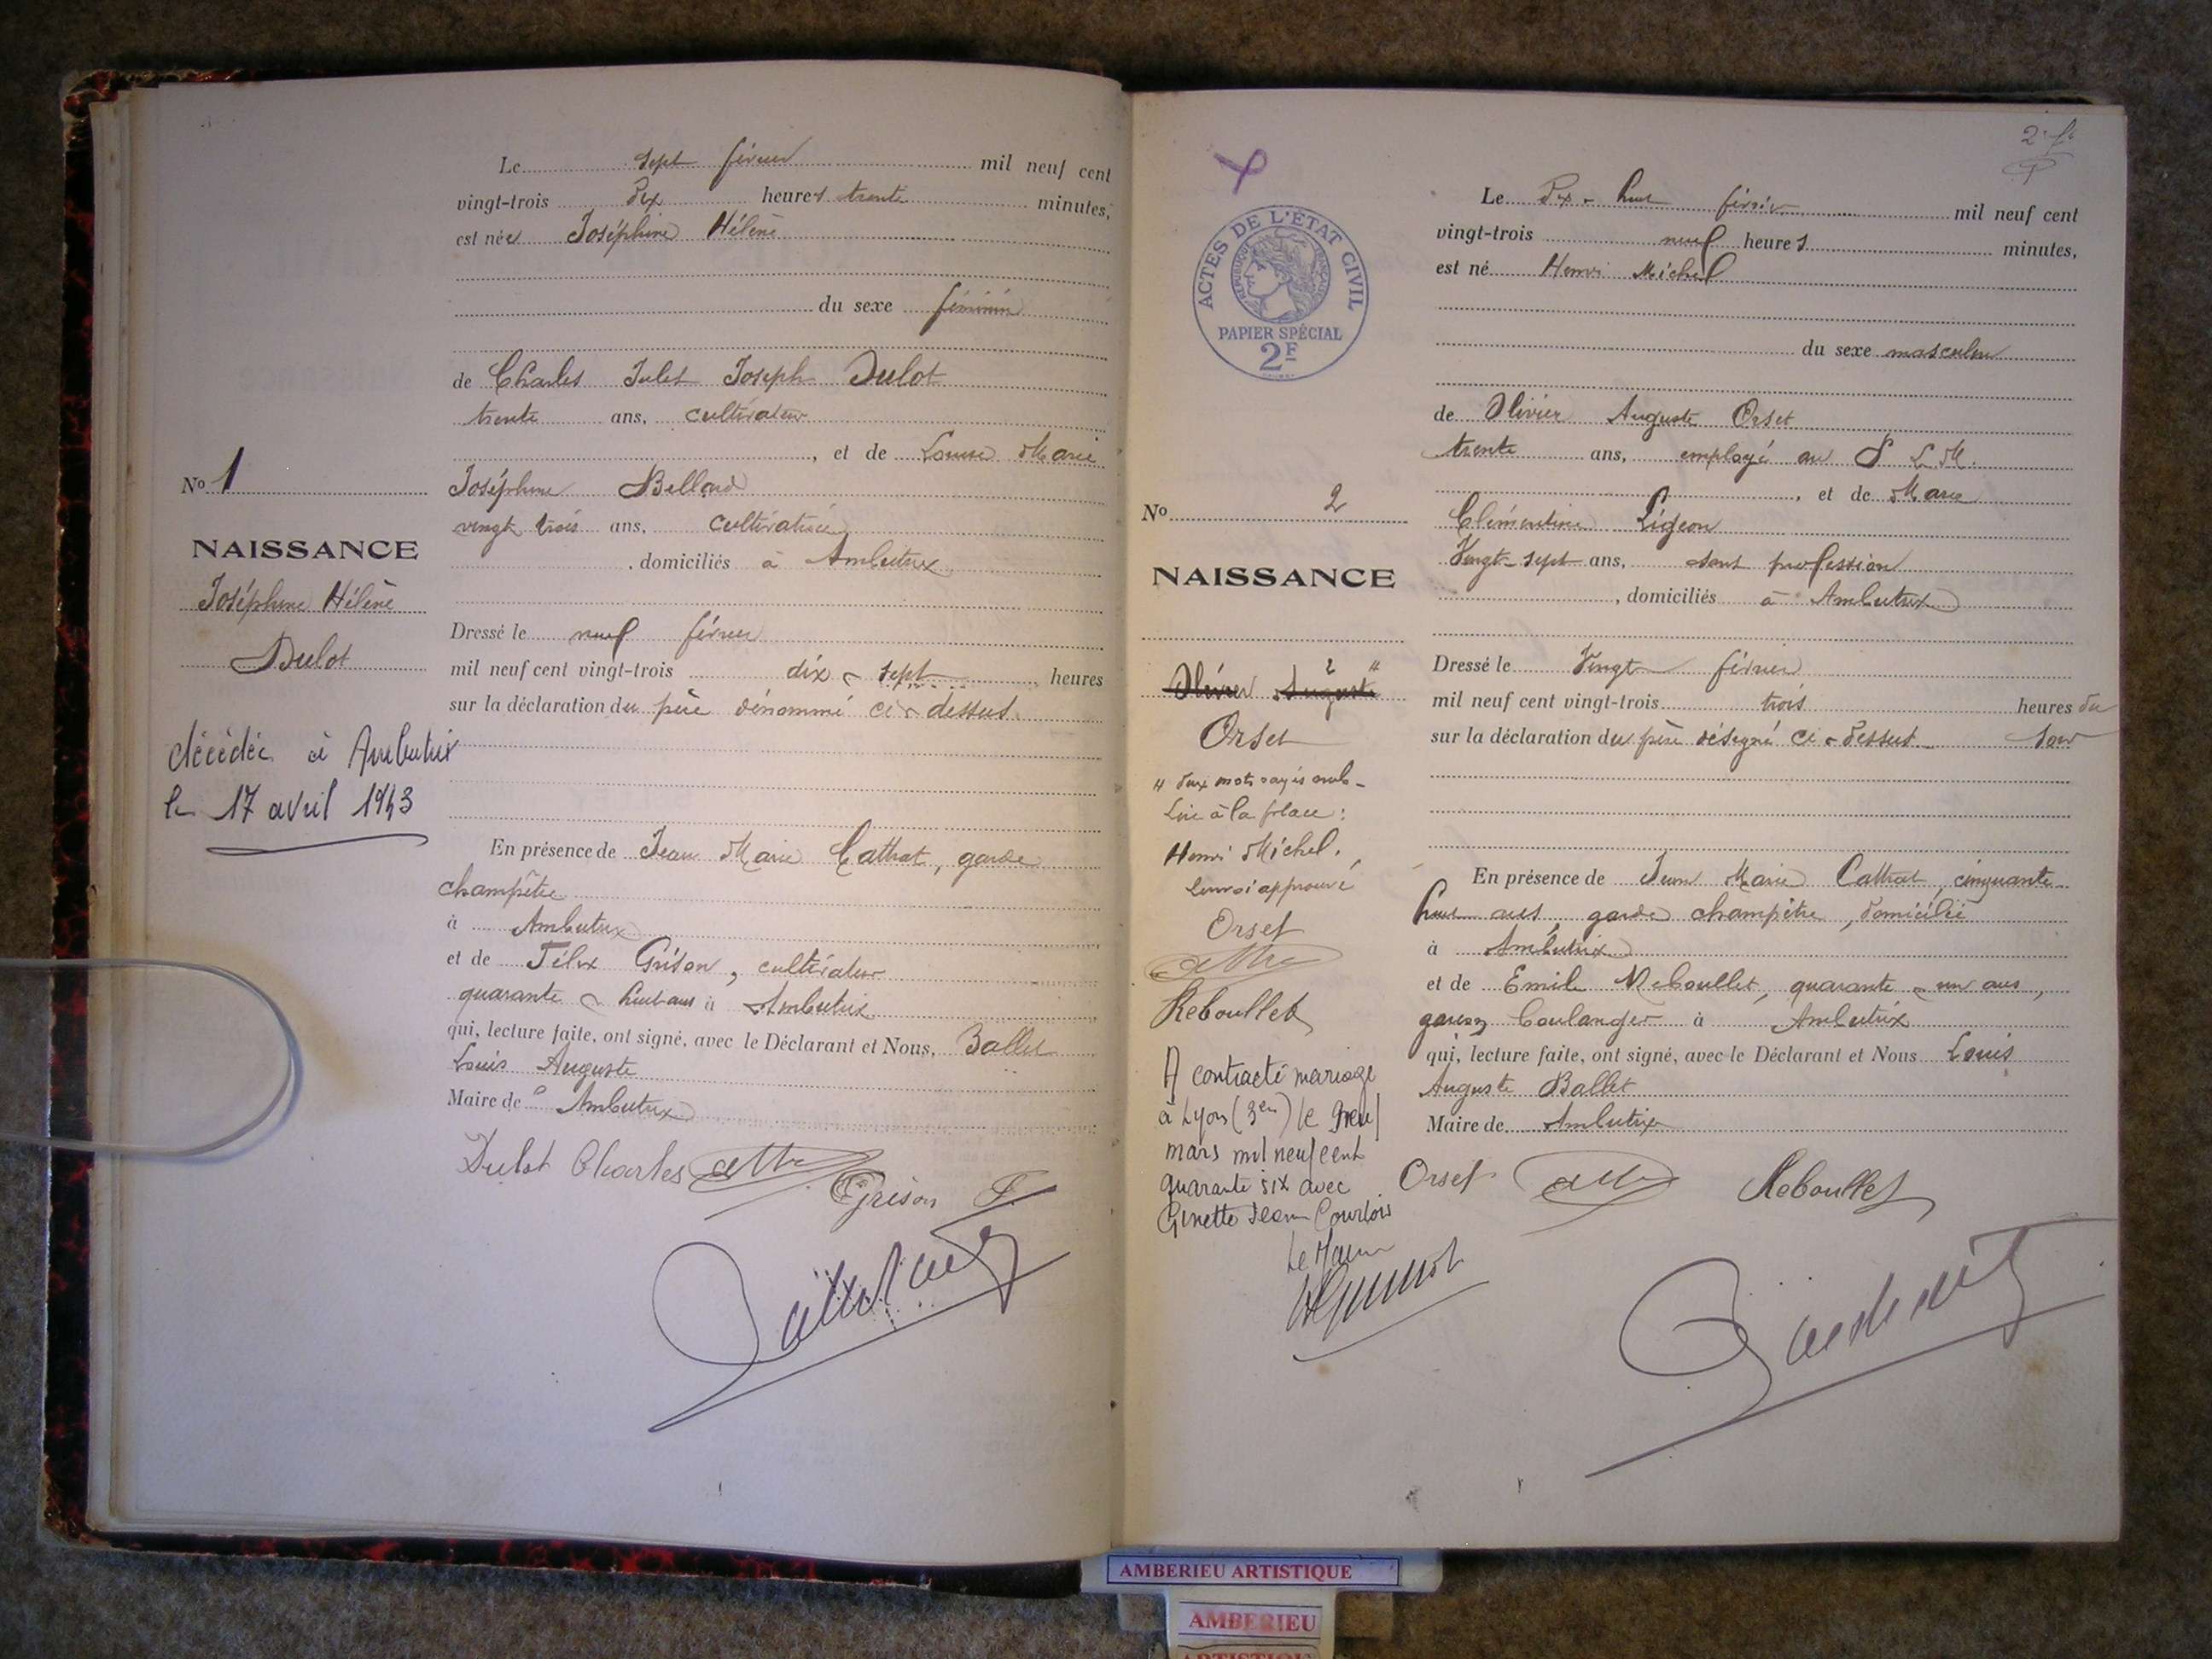 Le sept février mil neuf cent
vingt-trois dix heures trente minutes,
est née Joséphine Hélène
du sexe féminin
de Charles Jules Joseph Dulot
trente ans, cultivateur
, et de Louise Marie
Joséphine Belland
vingt trois ans, cultivatrice
, domiciliés à Ambutrix
Dressé le neuf février
mil neuf cent vingt-trois dix-sept heures
sur la déclaration du père dénommé ci-dessus
En présence de Jean Marie Cattrat, garde
champêtre
à Ambutrix
et de Félix Grison, cultivateur
quarante-huit ans à Ambutrix
qui, lecture faite, ont signé, avec le Déclarant et Nous, Ballet
Louis Auguste
Maire de Ambutrix
Dulot Charles
Grison F.
No 1
NAISSANCE
Joséphine Hélène
Dulot
décédée à Ambutrix
le 17 avril 1943
2
ACTES DE L'ÉTAT CIVIL
RÉPUBLIQUE FRANÇAISE
PAPIER SPÉCIAL
2F
No 2
NAISSANCE
Olivier Auguste
Orset
deux mots rayés nuls-
Lire à la place :
Henri Michel.
renvoi approuvé
Orset
Reboullet
A contracté mariage
à Lyon (3en) le neuf
mars mil neuf cent
quarante six avec
Ginette Jeanne Courtois
Le Maire
Le Dix-huit février mil neuf cent
vingt-trois neuf heures minutes,
est né Henri Michel
du sexe masculin
de Olivier Auguste Orset
trente ans, employé au P L M.
, et de Marie
Clémentine Pigeon
Vingt-sept ans, sans profession
, domiciliés à Ambutrix
Dressé le Vingt février
mil neuf cent vingt-trois trois heures du
sur la déclaration du père désigné ci-dessus soir
En présence de Jean Marie Cattrat, cinquante
huit ans, garde champêtre, domicilié
à Ambutrix
et de Emile Reboullet, quarante-un ans,
garçon boulanger à Ambutrix
qui, lecture faite, ont signé, avec le Déclarant et Nous Louis
Auguste Ballet
Maire de Ambutrix
Orset Reboullet
AMBERIEU ARTISTIQUE
AMBERIEU
ARTISTIQUE